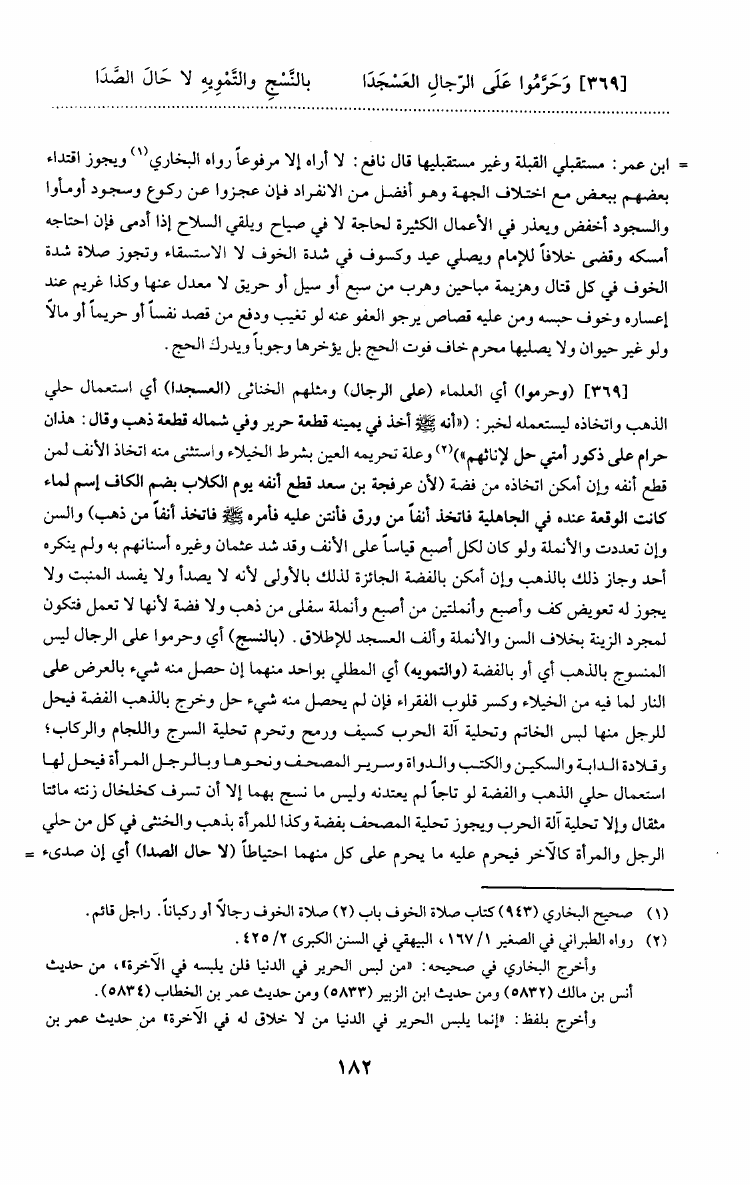 [٣٦٩] وَحَرَّمُوا عَلَى الرّجالِ العَسْجَدَا بالنَّسْجِ والتَّمْوِيهِ لا حَالَ الصَّدَا
= ابن عمر: مستقبلي القبلة وغير مستقبليها قال نافع: لا أراه إلا مرفوعاً رواه البخاري(١) ويجوز اقتداء
بعضهم ببعض مع اختلاف الجهة وهو أفضل من الانفراد فإن عجزوا عن ركوع وسجود أومأوا
والسجود أخفض ويعذر في الأعمال الكثيرة لحاجة لا في صياح ويلقي السلاح إذا أدمى فإن احتاجه
أمسكه وقضى خلافاً للإمام ويصلي عيد وكسوف في شدة الخوف لا الاستسقاء وتجوز صلاة شدة
الخوف في كل قتال وهزيمة مباحين وهرب من سبع أو سيل أو حريق لا معدل عنها وكذا غريم عند
إعساره وخوف حبسه ومن عليه قصاص يرجو العفو عنه لو تغيب ودفع من قصد نفساً أو حريماً أو مالاً
ولو غير حيوان ولا يصليها محرم خاف فوت الحج بل يؤخرها وجوباً ويدرك الحج.
[٣٦٩] (وحرموا) أي العلماء (على الرجال) ومثلهم الخناثى (العسجدا) أي استعمال حلي
الذهب واتخاذه ليستعمله لخبر: («أنه ﷺ أخذ في يمينه قطعة حرير وفي شماله قطعة ذهب وقال: هذان
حرام على ذكور أمتي حل لإناثهم»)(٢) وعلة تحريمه العين بشرط الخيلاء واستثنى منه اتخاذ الأنف لمن
قطع أنفه وإن أمكن اتخاذه من فضة (لأن عرفجة بن سعد قطع أنفه يوم الكلاب بضم الكاف إسم لماء
كانت الوقعة عنده في الجاهلية فاتخذ أنفاً من ورق فأنتن عليه فأمره ﷺ فاتخذ أنفاً من ذهب) والسن
وإن تعددت والأنملة ولو كان لكل أصبع قياساً على الأنف وقد شد عثمان وغيره أسنانهم به ولم ينكره
أحد وجاز ذلك بالذهب وإن أمكن بالفضة الجائزة لذلك بالأولى لأنه لا يصدأ ولا يفسد المنبت ولا
يجوز له تعويض كف وأصبع وأنملتين من أصبع وأنملة سفلى من ذهب ولا فضة لأنها لا تعمل فتكون
لمجرد الزينة بخلاف السن والأنملة وألف العسجد للإطلاق. (بالنسج) أي وحرموا على الرجال ليس
المنسوج بالذهب أي أو بالفضة (والتمويه) أي المطلي بواحد منهما إن حصل منه شيء بالعرض على
النار لما فيه من الخيلاء وكسر قلوب الفقراء فإن لم يحصل منه شيء حل وخرج بالذهب الفضة فيحل
للرجل منها لبس الخاتم وتحلية آلة الحرب كسيف ورمح وتحرم تحلية السرج واللجام والركاب؛
وقلادة الدابة والسكين والكتب والدواة وسرير المصحف ونحوها وبالرجل المرأة فيحل لها
استعمال حلي الذهب والفضة لو تاجاً لم يعتدنه وليس ما نسج بهما إلا أن تسرف كخلخال زنته مائتا
مثقال وإلا تحلية آلة الحرب ويجوز تحلية المصحف بفضة وكذا للمرأة بذهب والخنثى في كل من حلي
الرجل والمرأة كالآخر فيحرم عليه ما يحرم على كل منهما احتياطاً (لا حال الصدا) أي إن صدىء =
(١) صحيح البخاري (٩٤٣) كتاب صلاة الخوف باب (٢) صلاة الخوف رجالاً أو ركباناً. راجل قائم.
(٢) رواه الطبراني في الصغير ١/ ١٦٧، البيهقي في السنن الكبرى ٢/ ٤٢٥.
وأخرج البخاري في صحيحه: «من لبس الحرير في الدنيا فلن يلبسه في الآخرة»، من حديث
أنس بن مالك (٥٨٣٢) ومن حديث ابن الزبير (٥٨٣٣) ومن حديث عمر بن الخطاب (٥٨٣٤).
وأخرج بلفظ: «إنما يلبس الحرير في الدنيا من لا خلاق له في الآخرة» من حديث عمر بن
١٨٢